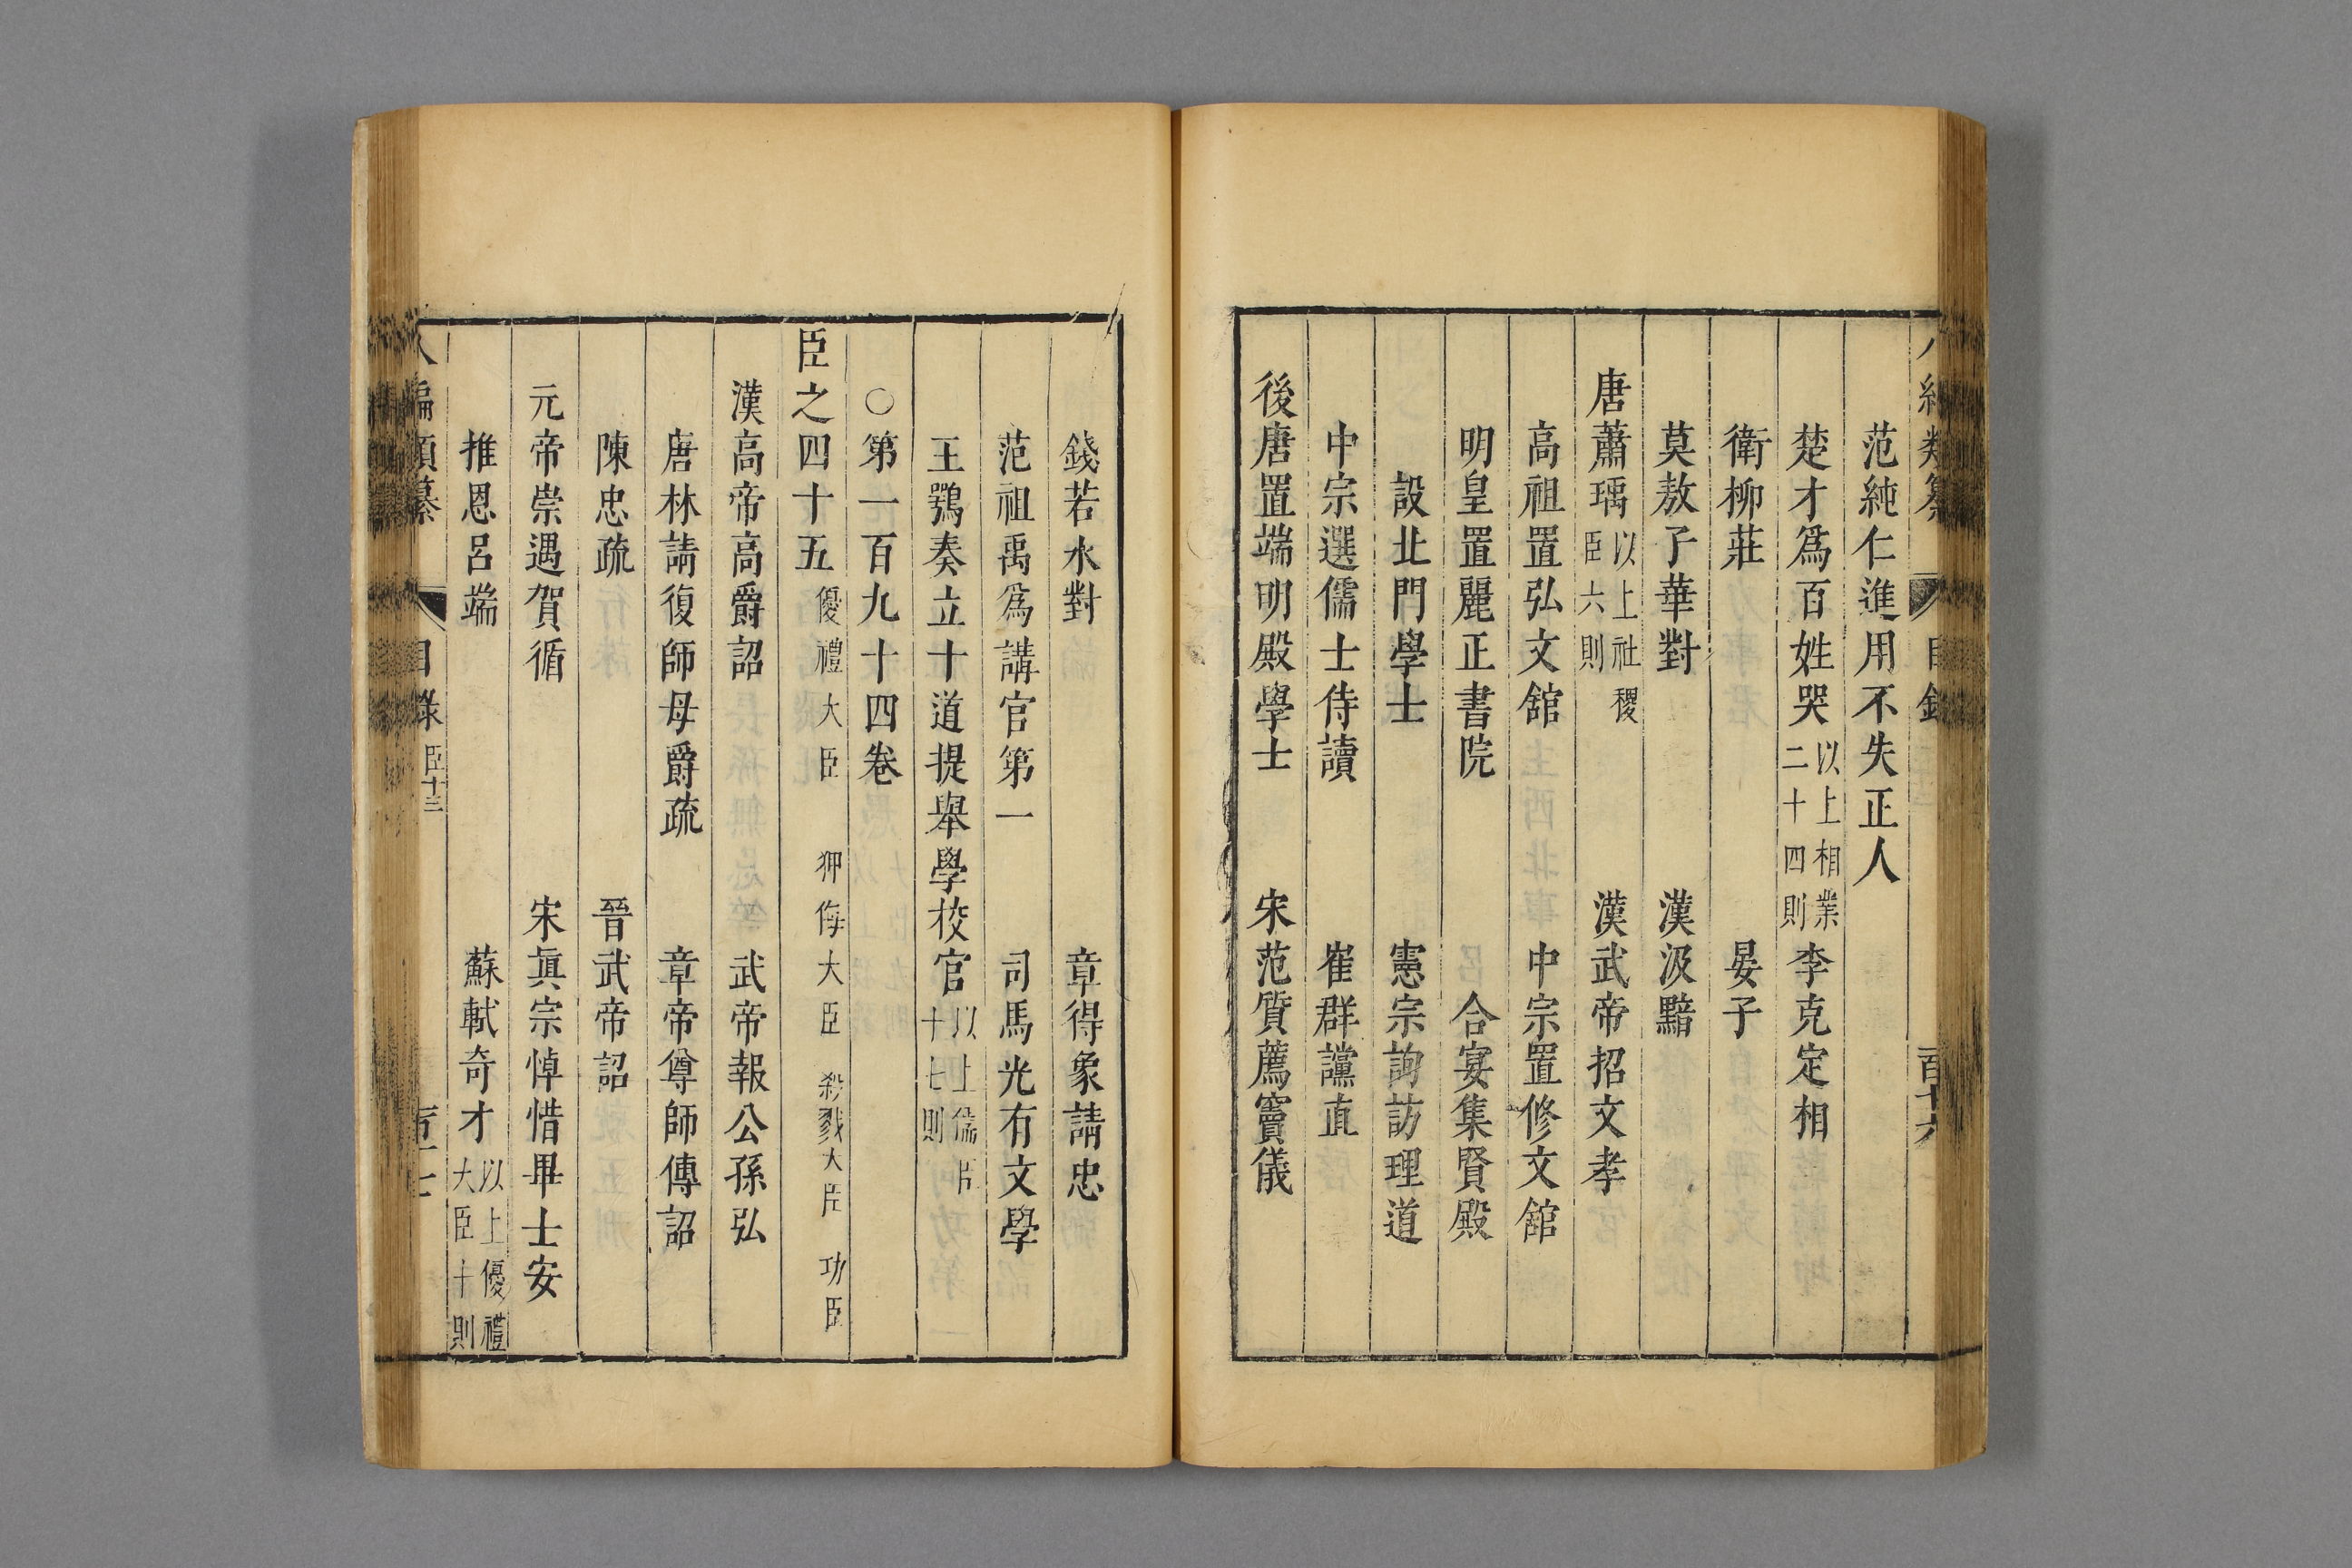 范純仁進用不失正人
楚才爲百姓哭以上相業二十四則 李克定相
衛柳莊 晏子
莫敖子華對 漢汲黯
唐蕭瑀以上社稷臣六則 漢武帝招文孝
高祖置弘文舘 中宗置修文舘
明皇置麗正書院 合宴集賢殿
設北門學士 憲宗詢訪理道
中宗選儒士侍讀 崔群讜直
後唐置端明殿學士 宋范質薦竇儀
錢若水對 章得象請忠
范祖禹爲講官第一 司馬光有文學
王鶚奏立十道提舉學校官以上儒臣十七則
○第一百九十四卷
臣之四十五優禮大臣 狎侮大臣 殺戮大臣 功臣
漢高帝高爵詔 武帝報公孫弘
唐林請復師母爵疏 章帝尊師傅詔
陳忠疏 晉武帝詔
元帝崇遇賀循 宋眞宗悼惜畢士安
推恩呂端 蘇軾奇才以上優禮大臣十則
編類纂 目錄 臣十三